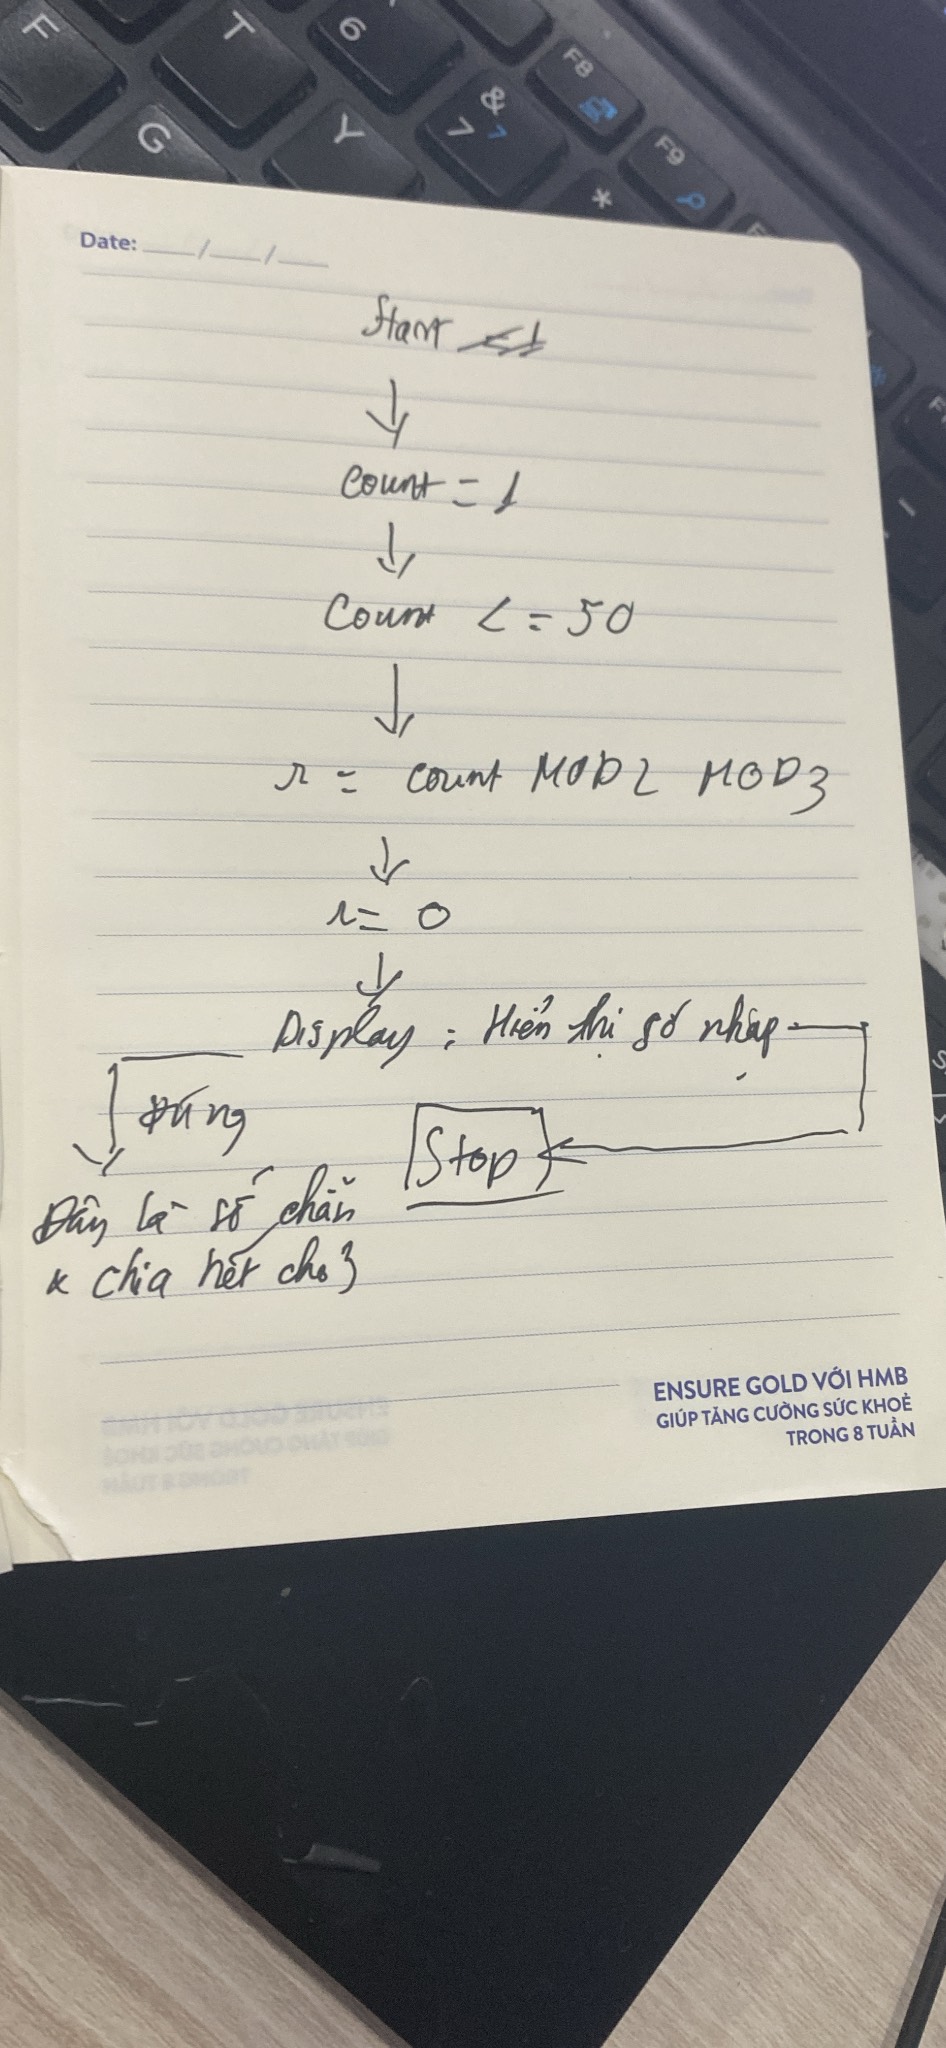 F
T
6
G
Y
&
7 7
F8
F9
*
Date: ___/___/___
Start
Count = 1
Count <= 50
r = count MOD2 MOD3
r = 0
Display : Hiển thị số nhập
Đúng
Stop
Đây là số chẵn
x chia hết cho 3
ENSURE GOLD VỚI HMB
GIÚP TĂNG CƯỜNG SỨC KHOẺ
TRONG 8 TUẦN